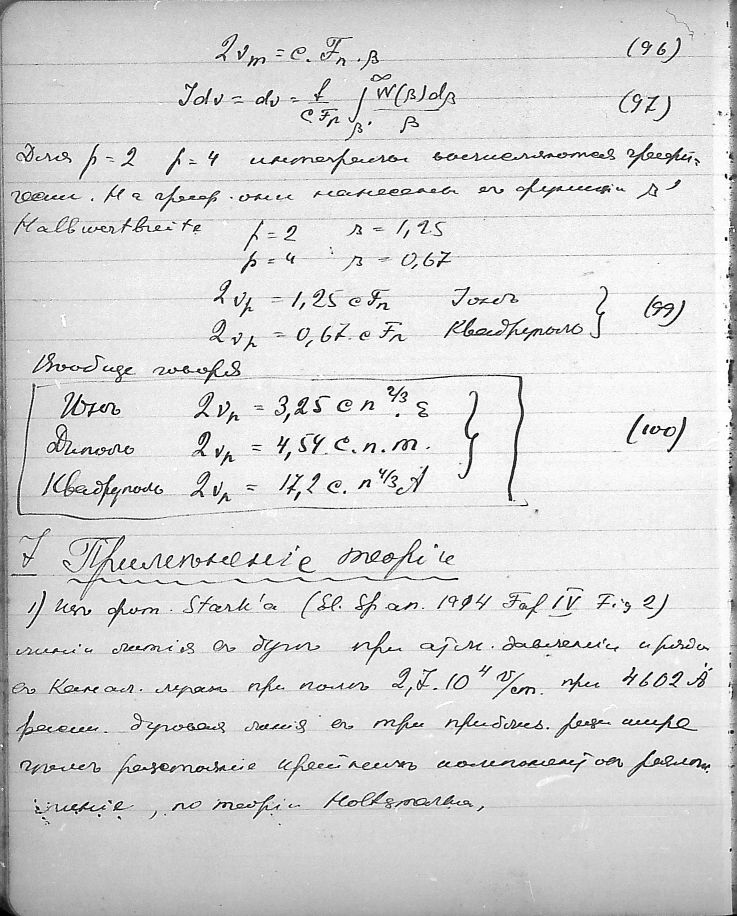 2ν_m = c. F_n . β (96)
Jdν = dν = f/(c F_n) ∫_β^∞ W(β)dβ/β (97)
Для p=2 p=4 интегралы вычисляются графи-
чески. На граф. они нанесены в функции β'
Halbwertbreite p=2 β=1,25
p=4 β=0,67
2ν_p = 1,25 c F_n Іонъ
2ν_p = 0,67. c F_n Квадруполь } (99)
Вообще говоря
Іонъ 2ν_p = 3,25 c n^2/3. ε
Диполь 2ν_p = 4,54. c. n. m. } (100)
Квадруполь 2ν_p = 17,2 c. n^4/3 A
7 Приложеніе теоріи
1) Изъ фот. Stark'a (El. Span. 1914 Taf IV Fig 2)
линіи литія въ дугѣ при атм. давленіи и рядомъ
въ канал. лучахъ при полѣ 2,7.10^4 V/cm. при 4602 Å
дуговая линія въ три прибл. раза шире
разстоянія крайнихъ компонентовъ
, по теоріи Holtsmarka,